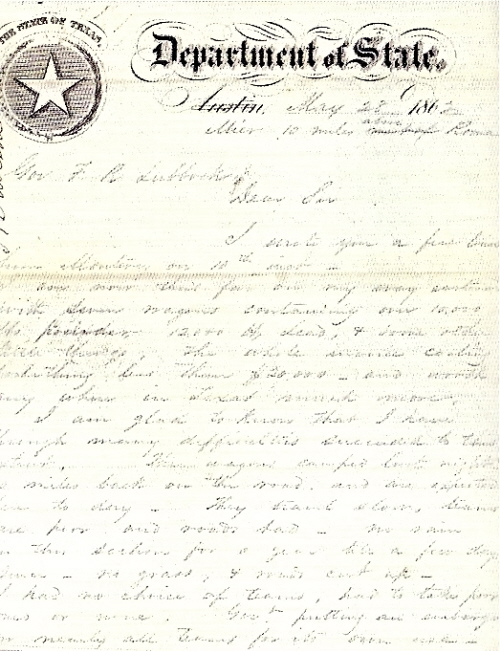 THE STATE OF TEXAS.
Department of State.
Austin, May 28 1862
Mier 10 miles above Roma
Gov F R Lubbock
Dear Sir
I wrote you a few lines
from Monterey on 10th inst -
am now thus far on my way
with seven wagons containing over 10,000
lbs powder, 12000 lbs lead, & some other
little things, the whole invoice costing
something less than $20.000 - and worth
any where in Texas much more.
I am glad to know that I have
through many difficulties succeeded to this
extent. The wagons camped last night
miles back on the road, and are expected
here to day - They travel slow, teams
are poor and roads bad - no rain
in this section for a year till a few days
since - no grass, & roads cut up -
I had no choice of teams, had to take poor
ones or none. Govt putting an embargo
on nearly all teams for its own use -